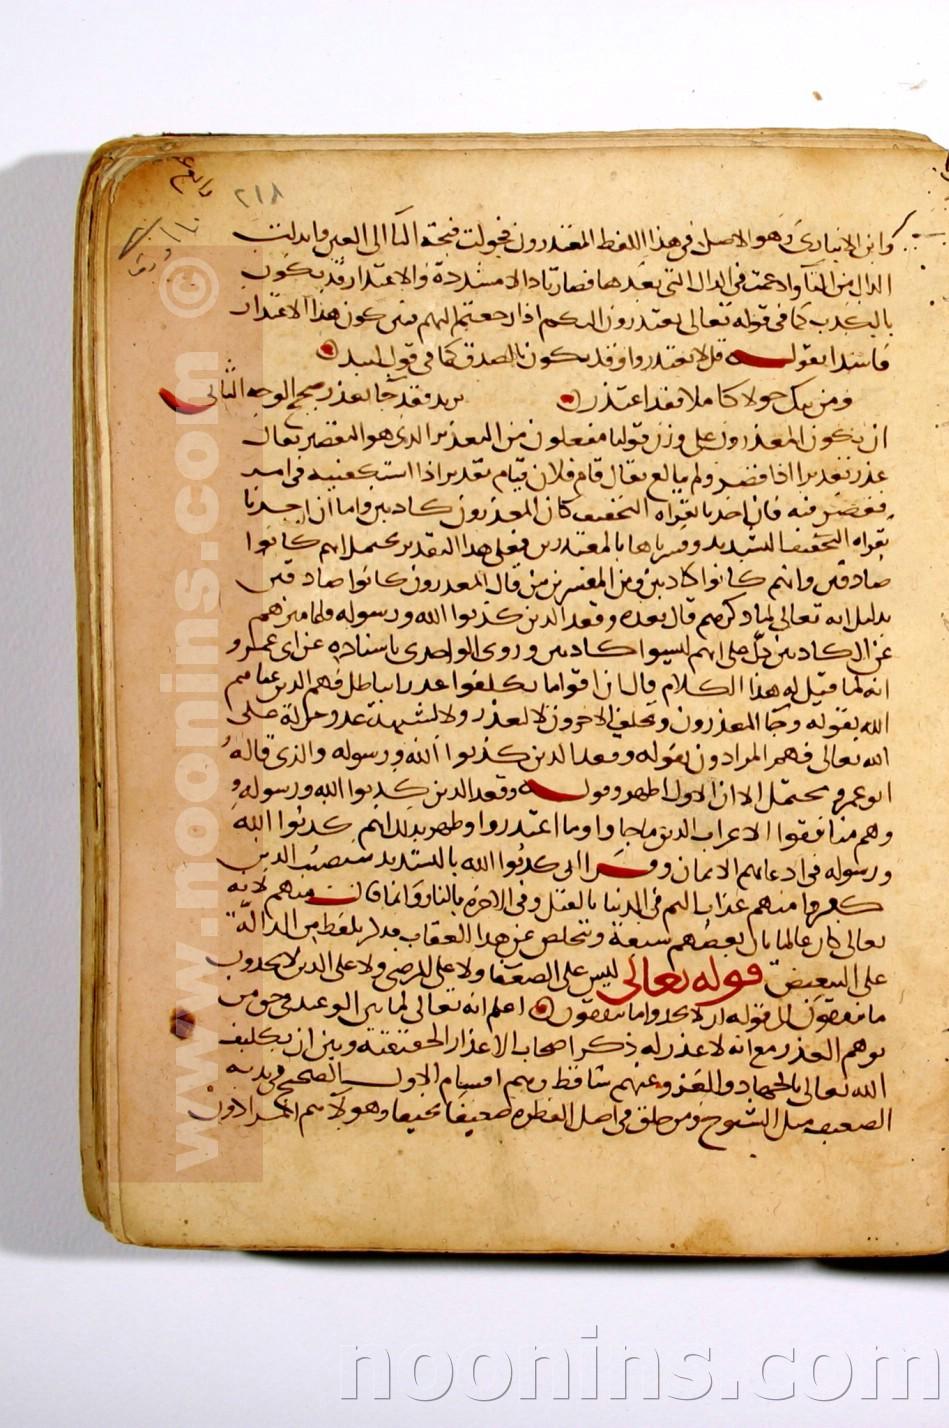 ٢١٨
وابن الانباري وهو الاصل في هذا اللفظ المعتذرون فحولت فتحة التا الى العين وابدلت
الذال من التا وادغمت في الذال التي بعدها فصارتا ذالا مشددة والاعتذار قد يكون
بالكذب كما في قوله تعالى يعتذرون اليكم اذا رجعتم اليهم فبين كون هذا الاعتذار
فاسدا بقوله قل لا تعتذروا وقد يكون بالصدق كما في قول لبيد
ومن يبك حولا كاملا فقد اعتذر يريد فقد جا بعذر صحيح الوجه الثاني
ان يكون المعذرون على وزن قولنا مفعلون من التعذير الذي هو التقصير يقال
عذر تعذيرا اذا قصر ولم يبالغ يقال قام فلان قيام تعذير اذا استكفيته في امر
فقصر فيه فان اخذنا بقراة التخفيف كان المعذرون كاذبين واما ان اخذنا
بقراة التشديد وفسرناها بالمعتذرين فعلى هذا التقدير يحتمل انهم كانوا
صادقين وانهم كانوا كاذبين ومن المفسرين من قال المعذرون كانوا صادقين
بدليل انه تعالى لما ذكرهم قال بعده وقعد الذين كذبوا الله ورسوله فلما ميزهم
عن الكاذبين دل على انهم ليسوا كاذبين وروى الواحدي باسناده عن ابي عمرو
انه لما قيل له هذا الكلام قال ان اقواما تكلفوا عذرا بباطل فهم الذين عناهم
الله بقوله وجا المعذرون وتخلف الاخرون لا لعذر ولا لشبهة عذر جراة على
الله تعالى فهم المرادون بقوله وقعد الذين كذبوا الله ورسوله والذي قاله
ابو عمرو محتمل الا ان الاول اظهر وقوله وقعد الذين كذبوا الله ورسوله
وهم منافقوا الاعراب الذين ما جاوا وما اعتذروا وظهر بذلك انهم كذبوا الله
ورسوله في ادعايهم الايمان وقرا ابي كذبوا الله بالتشديد سيصيب الذين
كفروا منهم عذاب اليم في الدنيا بالقتل وفي الاخرة بالنار وانما قال منهم لانه
تعالى كان عالما بان بعضهم سيومن ويتخلص عن هذا العقاب فذكر بلفظ من الدالة
على التبعيض قوله تعالى ليس على الضعفا ولا على المرضى ولا على الذين لا يجدون
ما ينفقون الى قوله ان لا يجدوا ما ينفقون اعلم انه تعالى لما بين الوعيد في حق من
يوهم العذر مع انه لا عذر له ذكر اصحاب الاعذار الحقيقية وبين ان تكليف
الله تعالى بالجهاد والغزو عنهم ساقط وهم اقسام الاول الصحيح في بدنه
الضعيف مثل الشيوخ ومن خلق في اصل الفطرة ضعيفا نحيفا وهولا هم المرادون
www.noonins.com ©
noonins.com